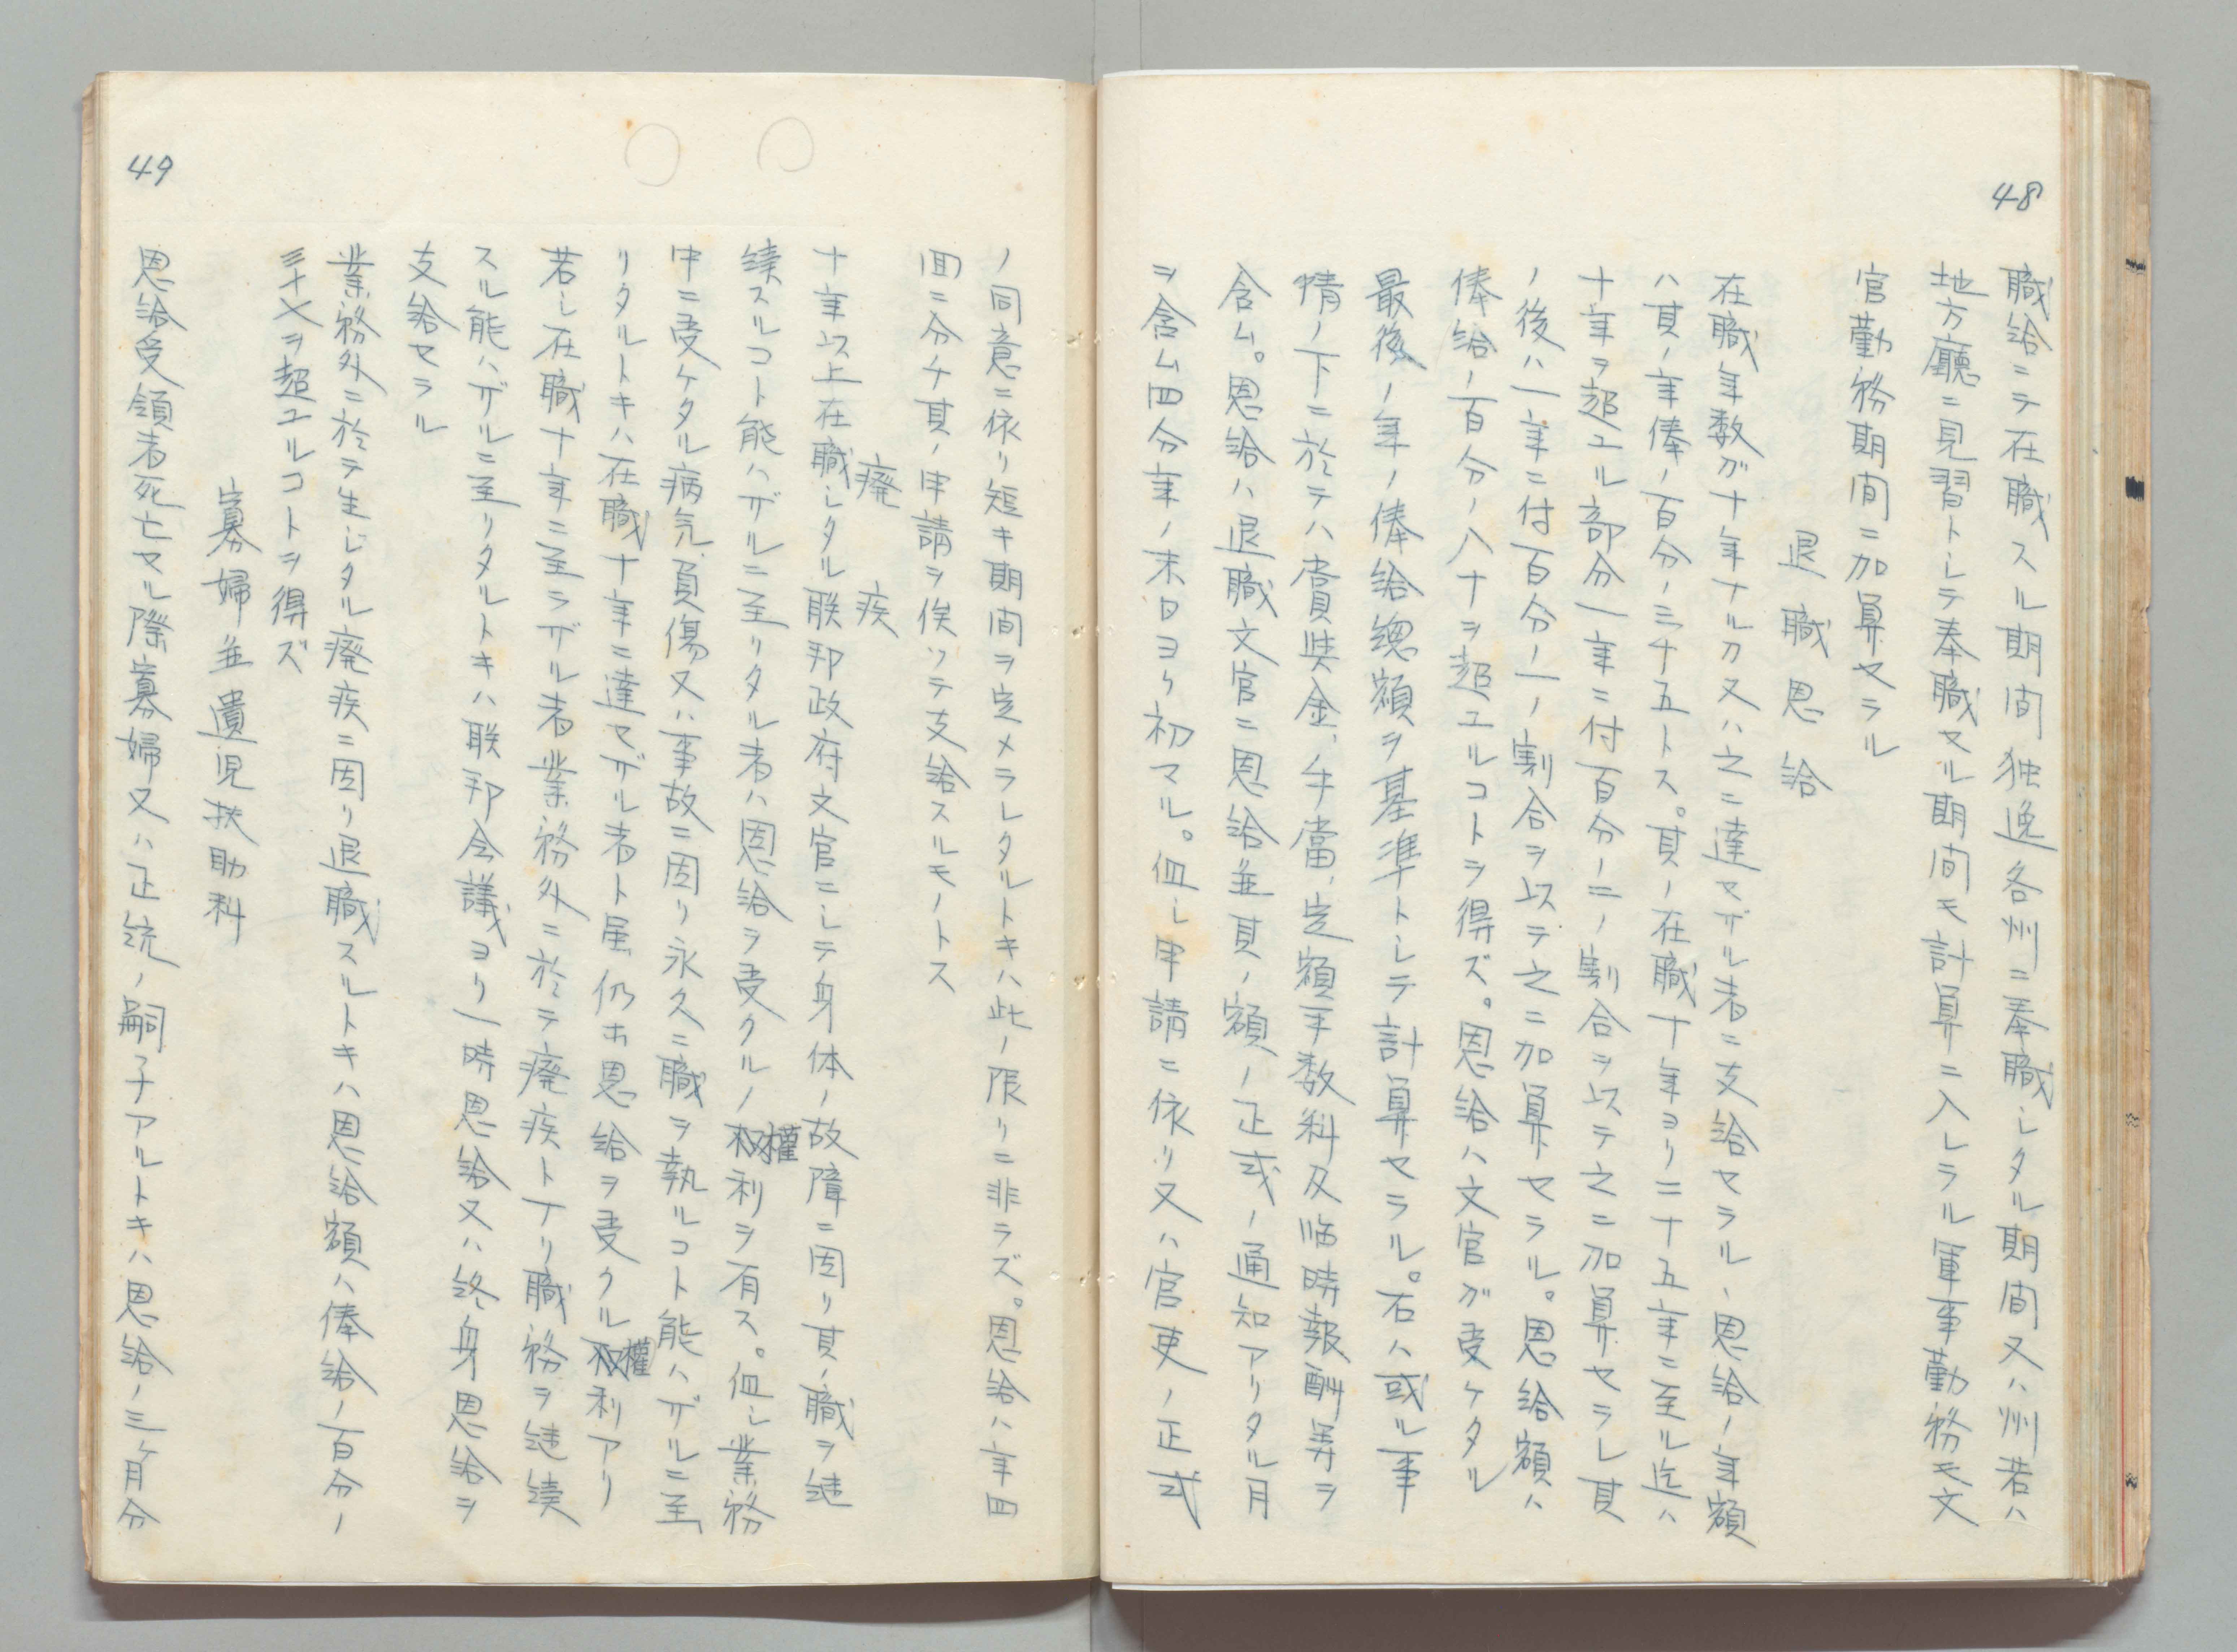 48
職給ニテ在職スル期間独逸各州ニ奉職シタル期間又ハ州若ハ
地方廳ニ見習トシテ奉職セル期間モ計算ニ入レラル軍事勤務モ文
官勤務期間ニ加算セラル
退職恩給
在職年数ガ十年ナルカ又ハ之ニ達セザル者ニ支給セラル、恩給ノ年額
ハ其ノ年俸ノ百分ノ三十五トス。其ノ在職十年ヨリ二十五年ニ至ル迄ハ
十年ヲ超ユル部分一年ニ付百分ノ二ノ割合ヲ以テ之ニ加算セラレ其
ノ後ハ一年ニ付百分ノ一ノ割合ヲ以テ之ニ加算セラル。恩給額ハ
俸給ノ百分ノ八十ヲ超ユルコトヲ得ズ。恩給ハ文官ガ受ケタル
最後ノ年ノ俸給総額ヲ基準トシテ計算セラル。右ハ或ル事
情ノ下ニ於テハ賞奨金、手當、定額手数料及臨時報酬等ヲ
含ム。恩給ハ退職文官ニ恩給並其ノ額ノ正式ノ通知アリタル月
ヲ含ム四分年ノ末日ヨリ初マル。但シ申請ニ依リ又ハ官吏ノ正式
49
ノ同意ニ依リ短キ期間ヲ定メラレタルトキハ此ノ限リニ非ラズ。恩給ハ年四
回ニ分チ其ノ申請ヲ俟ツテ支給スルモノトス
廃疾
十年以上在職シタル联邦政府文官ニシテ身体ノ故障ニ因リ其ノ職ヲ継
続スルコト能ハザルニ至リタル者ハ恩給ヲ受クルノ權利ヲ有ス。但シ業務
中ニ受ケタル病気、負傷又ハ事故ニ因リ永久ニ職ヲ執ルコト能ハザルニ至
リタルトキハ在職十年ニ達セザル者ト雖仍ホ恩給ヲ受クル權利アリ
若シ在職十年ニ至ラザル者業務外ニ於テ廃疾トナリ職務ヲ継続
スル能ハザルニ至リタルトキハ联邦会議ヨリ一時恩給又ハ終身恩給ヲ
支給セラル
業務外ニ於テ生ジタル廃疾ニ因リ退職スルトキハ恩給額ハ俸給ノ百分ノ
三十七ヲ超ユルコトヲ得ズ
寡婦並遺児扶助料
恩給受領者死亡セル際寡婦又ハ正統ノ嗣子アルトキハ恩給ノ三ヶ月分